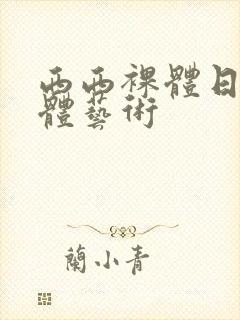 西西裸體日
體藝術
蘭小青